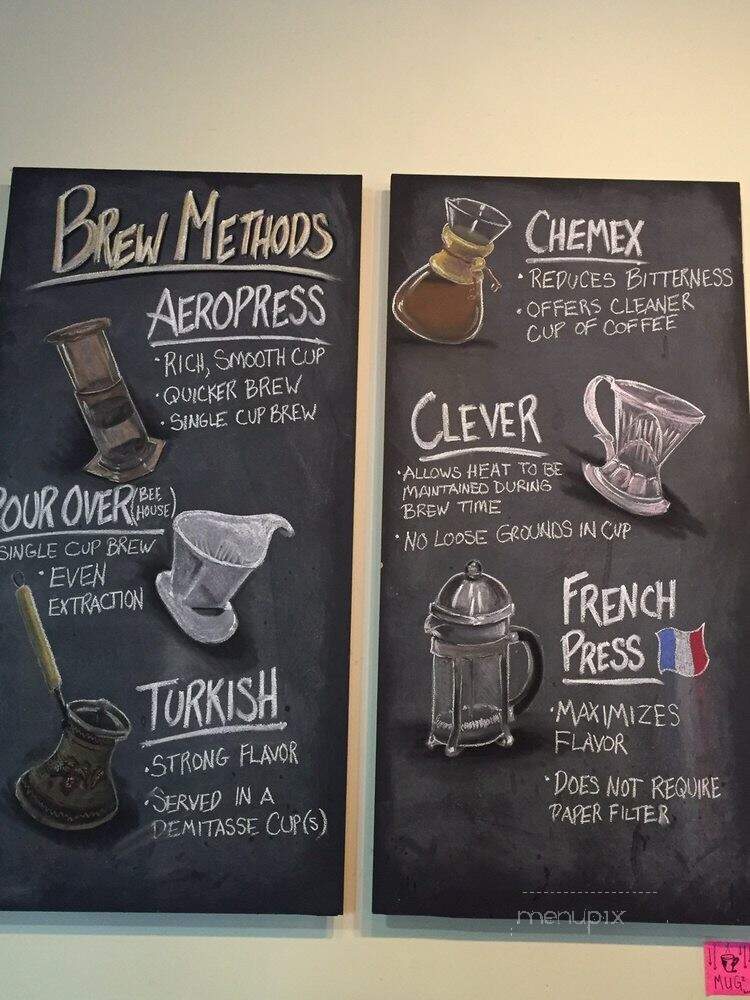 BREW METHODS
AEROPRESS
• RICH, SMOOTH CUP
• QUICKER BREW
• SINGLE CUP BREW
POUR OVER (BEE
HOUSE)
SINGLE CUP BREW
• EVEN
EXTRACTION
TURKISH
• STRONG FLAVOR
• SERVED IN A
DEMITASSE CUP(S)
CHEMEX
• REDUCES BITTERNESS
• OFFERS CLEANER
CUP OF COFFEE
CLEVER
• ALLOWS HEAT TO BE
MAINTAINED DURING
BREW TIME
• NO LOOSE GROUNDS IN CUP
FRENCH
PRESS
• MAXIMIZES
FLAVOR
• DOES NOT REQUIRE
PAPER FILTER
menupix
MUG